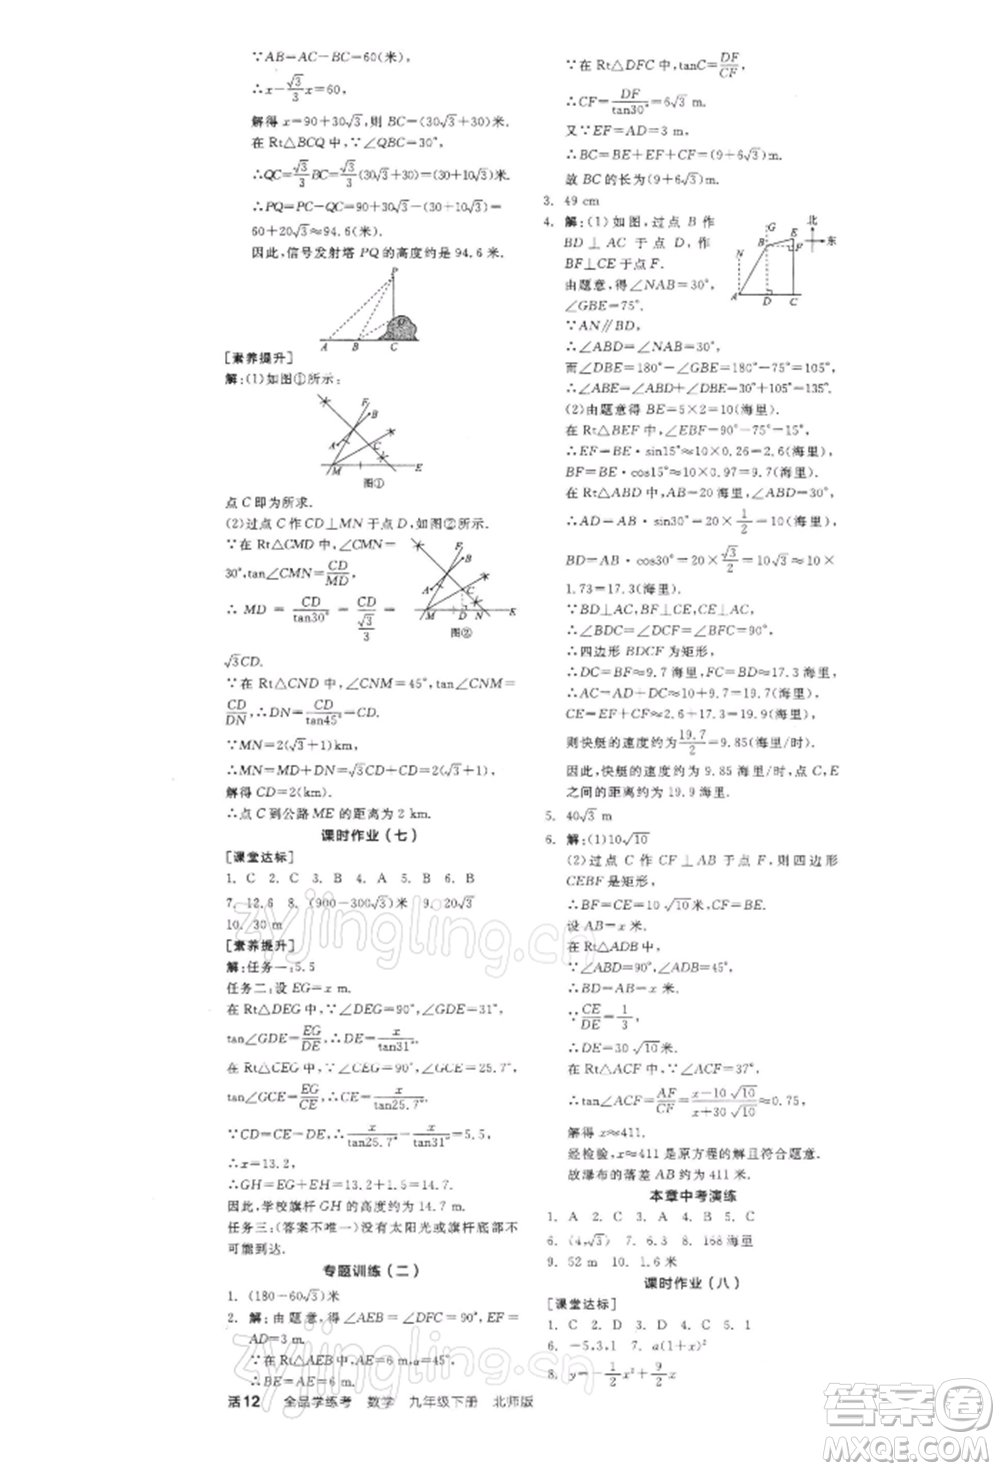 ∵AB=AC−BC=60(米),
∴x−√3/3x=60,
解得 x=90+30√3,则 BC=(90+30√3)米.
在 Rt△BCQ 中,∵∠QBC=30°,
∴QC=√3/3BC=(30√3+30)米,
∴PQ=PC−QC=90+30√3−(30+30√3)=
60+20√3≈94.6(米).
因此,信号发射塔 PQ 的高度约是 94.6 米.
P
Q
A B C
[素养提升]
解:(1)如图①所示:
F
B
A
C
M N E
图①
点 C 即为所求.
(2)过点 C 作 CD⊥MN 于点 D,如图②所示.
∵在 Rt△CMD 中,∠CMN=
30°,tan∠CMN=CD/MD,
∴MD=CD/tan30°=CD/(√3/3)=
√3CD.
F
B
C
M D N E
图②
∵在 Rt△CND 中,∠CNM=45°,tan45°=
CD/DN,∴DN=CD/tan45°=CD.
∵MN=2(√3+1)km,
∴MN=MD+DN=√3CD+CD=2(√3+1),
解得 CD=2 km.
∴点 C 到公路 ME 的距离为 2 km.
课时作业(七)
[课堂达标]
1. C 2. C 3. B 4. A 5. B 6. B
7. 12.6 8. (900−300√3)米 9. 20√3
10. 30 m
[素养提升]
解:任务一:5.5
任务二:设 EG=x m.
在 Rt△DEG 中,∵∠DEG=90°,∠GDE=31°,
tan∠GDE=EG/DE,∴DE=x/tan31°.
在 Rt△CEG 中,∵∠CEG=90°,∠GCE=25.7°,
tan∠GCE=EG/CE,∴CE=x/tan25.7°,
∵CD=CE−DE,∴x/tan25.7°−x/tan31°=5.5,
∴x=13.2,
∴GH=EG+EH=13.2+1.5=14.7(m).
因此,学校旗杆 GH 的高度约为 14.7 m.
任务三:(答案不唯一)没有太阳光或旗杆底部不
可能到达.
专题训练(二)
1. (180−60√3)米
2. 解:由题意,得∠AEB=∠DFC=90°,EF=
AD=3 m.
∵在 Rt△AEB 中,∠B=45°,AE=6 m,
∴BE=AE=6 m.
∵在 Rt△DFC 中,tanC=DF/CF,
∴CF=DF/tan30°=6√3 m.
又∵EF=AD=3 m,
∴BC=BE+EF+CF=(9+6√3)m.
故 BC 的长为(9+6√3)m.
3. 49 cm
4. 解:(1)如图,过点 B 作
BD⊥AC 于点 D,作
BF⊥CE 于点 F.
由题意,得∠NAB=30°,
∠GBE=75°.
∵AN∥BD,
G 北
B E
F 东
N
A D C
∴∠ABD=∠NAB=30°,
而∠DBE=180°−∠GBE=180°−75°=105°,
∴∠ABE=∠ABD+∠DBE=30°+105°=135°.
(2)由题意得 BE=5×2=10(海里).
在 Rt△BEF 中,∠EBF=90°−75°=15°,
∴EF=BE·sin15°≈10×0.26=2.6(海里),
BF=BE·cos15°≈10×0.97=9.7(海里).
在 Rt△ABD 中,AB=20 海里,∠ABD=30°,
∴AD=AB·sin30°=20×1/2=10(海里),
BD=AB·cos30°=20×√3/2=10√3≈10×
1.73=17.3(海里).
∵BD⊥AC,BF⊥CE,CE⊥AC,
∴∠BDC=∠DCF=∠BFC=90°,
∴四边形 BDCF 为矩形,
∴DC=BF≈9.7 海里,FC=BD≈17.3 海里,
∴AC=AD+DC≈10+9.7=19.7(海里),
CE=EF+CF≈2.6+17.3=19.9(海里),
则快艇的速度约为19.7/2=9.85(海里/时).
因此,快艇的速度约为 9.85 海里/时,点 C,E
之间的距离约为 19.9 海里.
5. 40√3 m
6. 解:(1)10√10
(2)过点 C 作 CF⊥AB 于点 F,则四边形
CEBF 是矩形,
∴BF=CE=10√10 m,CF=BE.
设 AB=x m.
在 Rt△ADB 中,
∵∠ABD=90°,∠ADB=45°,
∴BD=AB=x m.
∵CE/DE=1/3,
∴DE=30√10 m.
在 Rt△ACF 中,∵∠ACF=37°,
∴tan∠ACF=AF/CF=(x−10√10)/(x+30√10)≈0.75,
解得 x≈411.
经检验,x≈411 是原方程的解且符合题意,
故瀑布的落差 AB 约为 411 米.
本章中考演练
1. A 2. C 3. A 4. B 5. C
6. (4,√3) 7. 6.3 8. 168海里
9. 52 m 10. 1.6 米
课时作业(八)
[课堂达标]
1. C 2. C 3. D 4. C 5. 1
6. −5,3,1 7. a(1+x)²
8. y=−1/2x²+9/2x
活12 全品学练考 数学 九年级下册 北师版
zyjingling.cn
zyjingling.cn
答案圈
MXQE.COM